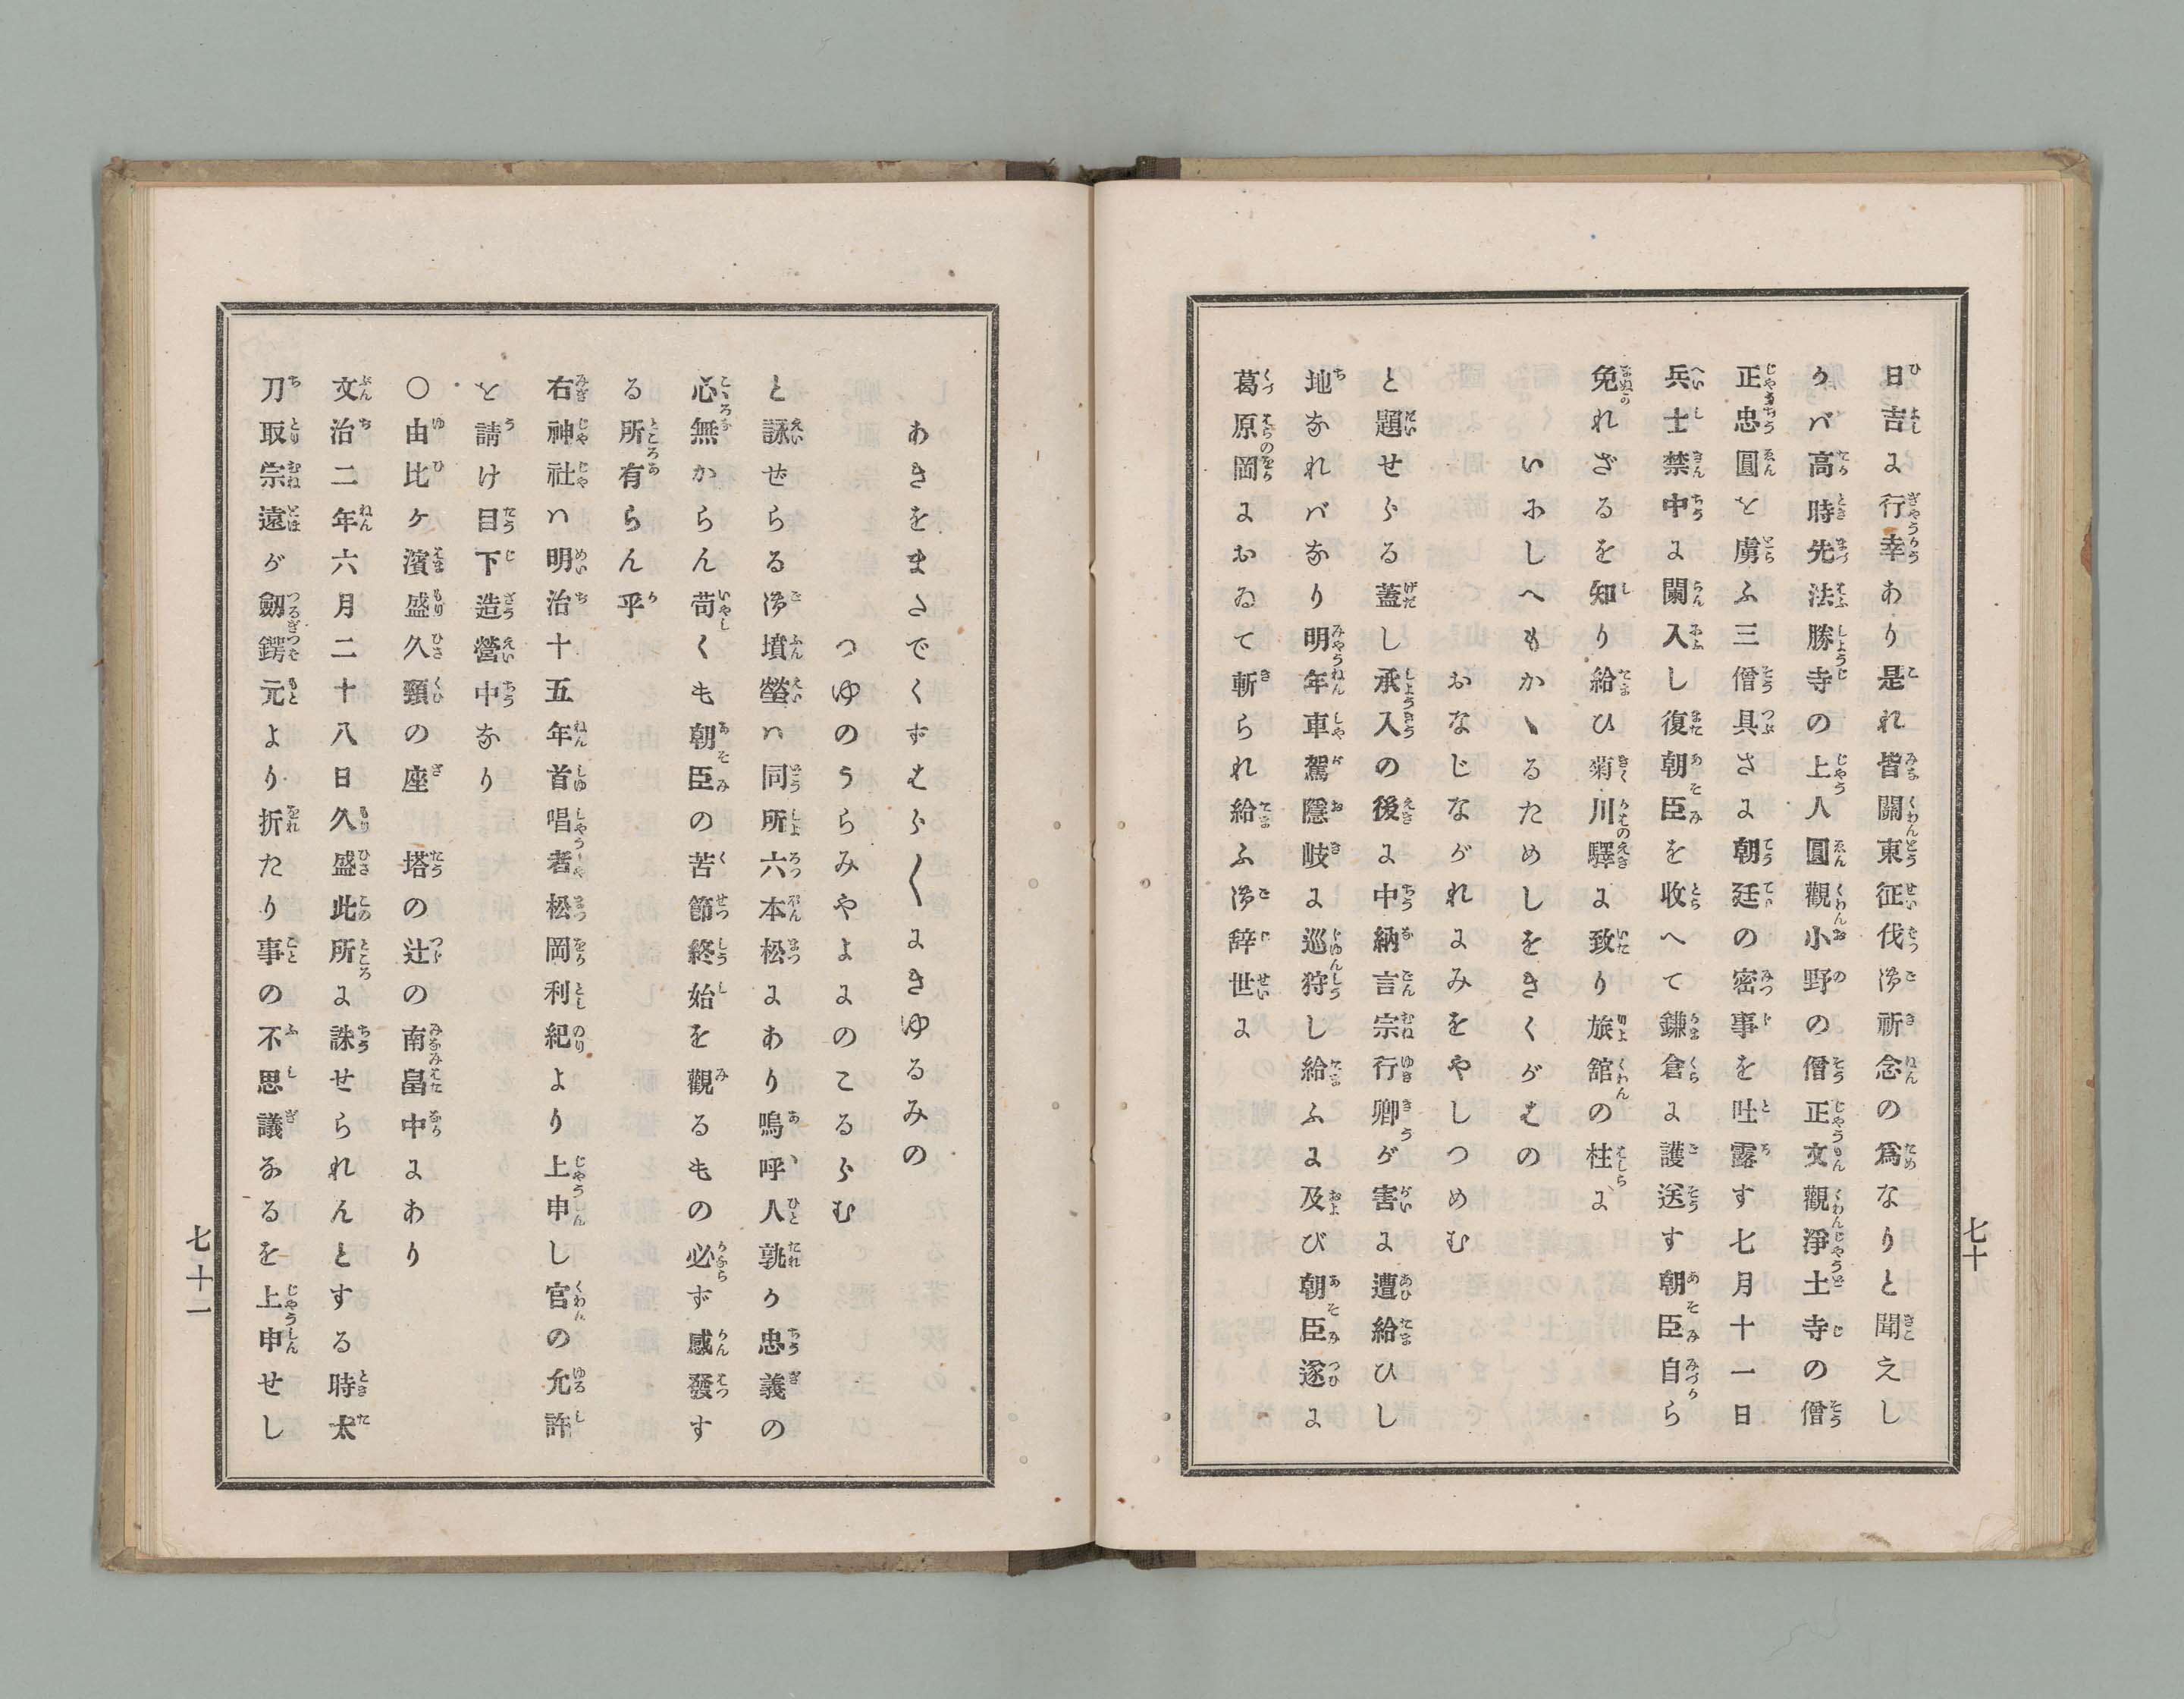 日吉に行幸あり是れ皆關東征伐御祈念の爲なりと聞えし
かバ高時先法勝寺の上人圓觀小野の僧正文觀淨土寺の僧
正忠圓を虜ふ三僧具さに朝廷の密事を吐露す七月十一日
兵士禁中に闌入し復朝臣を收へて鎌倉に護送す朝臣自ら
免れざるを知り給ひ菊川驛に致り旅舘の柱に
いにしへもかゝるためしをきくがはの
おなじながれにみをやしつめむ
と題せらる蓋し承入の後に中納言宗行卿が害に遭給ひし
地なれバなり明年車駕隱岐に巡狩し給ふに及び朝臣遂に
葛原岡におゐて斬られ給ふ御辞世に
七十
あきをまたでくずはら〱にきゆるみの
つゆのうらみやよにのこるらむ
と詠ぜらる御墳塋ハ同所六本松にあり嗚呼人孰か忠義の
心無からん苟くも朝臣の苦節終始を觀るもの必ず感發す
る所有らん乎
右神社ハ明治十五年首唱者松岡利紀より上申し官の允許
を請け目下造營中なり
○由比ヶ濱盛久頸の座　塔の辻の南畠中にあり
文治二年六月二十八日久盛此所に誅せられんとする時太
刀取宗遠が劔鍔元より折たり事の不思議なるを上申せし
七十一